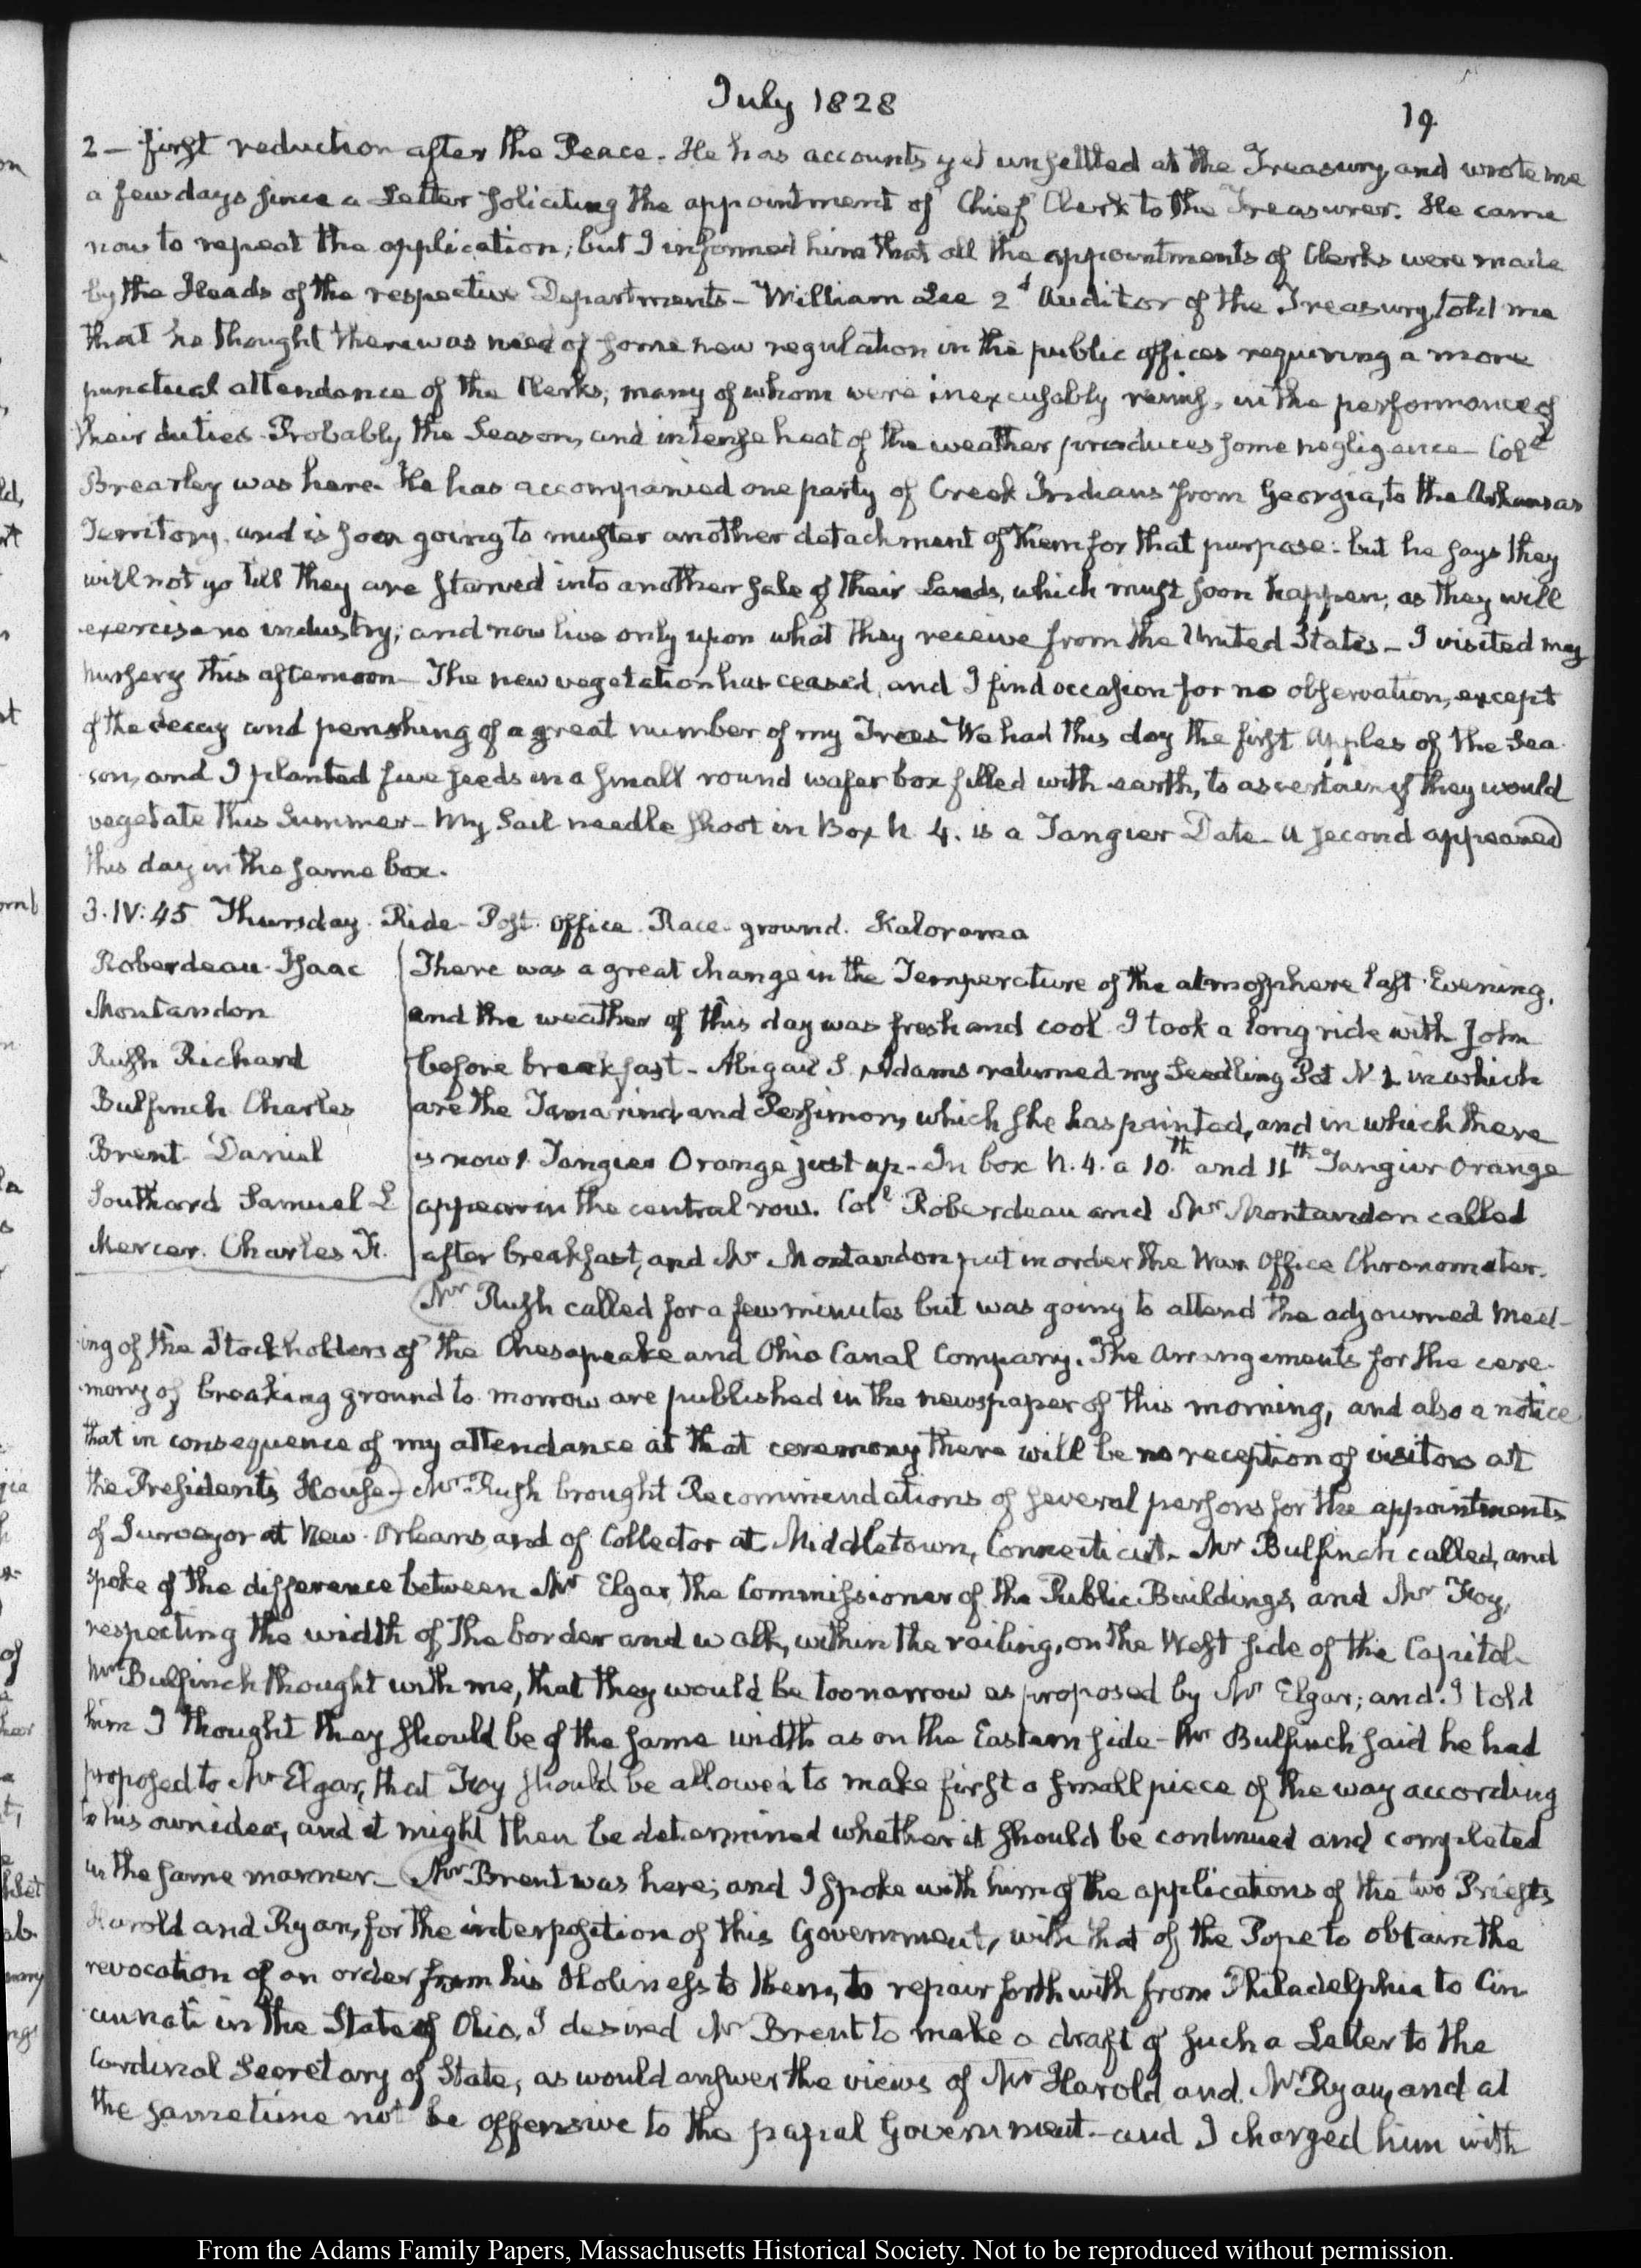 July 1828
19
2 — first reduction after the Peace. He has accounts yet unsettled at the Treasury, and wrote me
a few days since a Letter soliciting the appointment of Chief Clerk to the Treasurer. He came
now to repeat the application; but I informed him that all the appointments of Clerks were made
by the Heads of the respective Departments — William Lee 2d Auditor of the Treasury, told me
that he thought there was need of some new regulation in the public offices requiring a more
punctual attendance of the Clerks, many of whom were inexcusably remiss, in the performance of
their duties. Probably the Season, and intense heat of the weather produces some negligence — Coll.
Brearley was here. He has accompanied one party of Creek Indians from Georgia, to the Arkansas
Territory, and is soon going to muster another detachment of them for that purpose: but he says they
will not go till they are starved into another sale of their Lands, which must soon happen; as they will
exercise no industry; and now live only upon what they receive from the United States — I visited my
nursery this afternoon — The new vegetation has ceased, and I find occasion for no observation, except
of the decay and perishing of a great number of my Trees. We had this day the first Apples of the Sea-
son, and I planted five seeds in a small round wafer box filled with earth, to ascertain if they would
vegetate this Summer — My Sail needle shoot in Box N. 4. is a Tangier Date. A second appeared
this day in the same box.
3. IV: 45 Thursday. Ride. Post office. Race-ground. Kalorama
Roberdeau Isaac
Montandon
Rush Richard
Bulfinch Charles
Brent Daniel
Southard Samuel L
Mercer. Charles F.
There was a great change in the Temperature of the atmosphere last Evening,
and the weather of this day was fresh and cool. I took a long ride with John
before breakfast — Abigail S. Adams returned my Seedling Pot N 1 in which
are the Tamarind, and Persimon, which she has painted, and in which there
is now 1. Tangier Orange just up — In box N. 4. a 10.th and 11th Tangier Orange
appear in the central row. Coll Roberdeau and Mr Montandon called
after breakfast, and Mr Montandon put in order the War Office Chronometer.
Mr Rush called for a few minutes but was going to attend the adjourned meet-
ing of the Stockholders of the Chesapeake and Ohio Canal Company. The Arrangements for the cere-
mony of breaking ground to morrow are published in the newspaper of this morning, and also a notice
that in consequence of my attendance at that ceremony there will be no reception of visitors at
the President's House — Mr Rush brought Recommendations of several persons for the appointments
of Surveyor at New-Orleans and of Collector at Middletown, Connecticut. Mr Bulfinch called, and
spoke of the difference between Mr Elgar the Commissioner of the Public Buildings, and Mr Foy,
respecting the width of the border and walk, within the railing, on the West side of the Capitol.
Mr Bulfinch thought with me, that they would be too narrow as proposed by Mr Elgar; and I told
him I thought they should be of the same width as on the Eastern side — Mr Bulfinch said he had
proposed to Mr Elgar, that Foy should be allowed to make first a small piece of the way according
to his own idea, and it might then be determined whether it should be continued and completed
in the same manner — Mr Brent was here; and I spoke with him of the applications of the two Priests
Harold and Ryan, for the interposition of this Government, with that of the Pope to obtain the
revocation of an order from his Holiness to them, to repair forthwith from Philadelphia to Cin-
cinnati in the State of Ohio. I desired Mr Brent to make a draft of such a Letter to the
Cardinal Secretary of State, as would answer the views of Mr Harold and Mr Ryan, and at
the same time not be offensive to the papal Government — and I charged him with
From the Adams Family Papers, Massachusetts Historical Society. Not to be reproduced without permission.